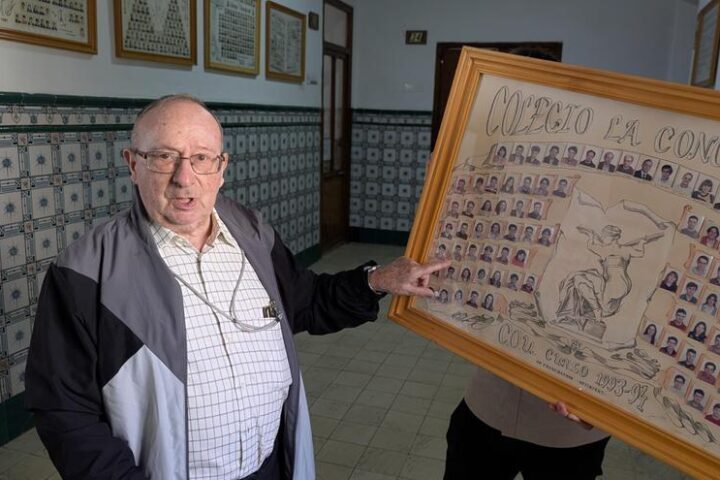 34
COLEGIO LA CONC
COU. CURSO 1993-94